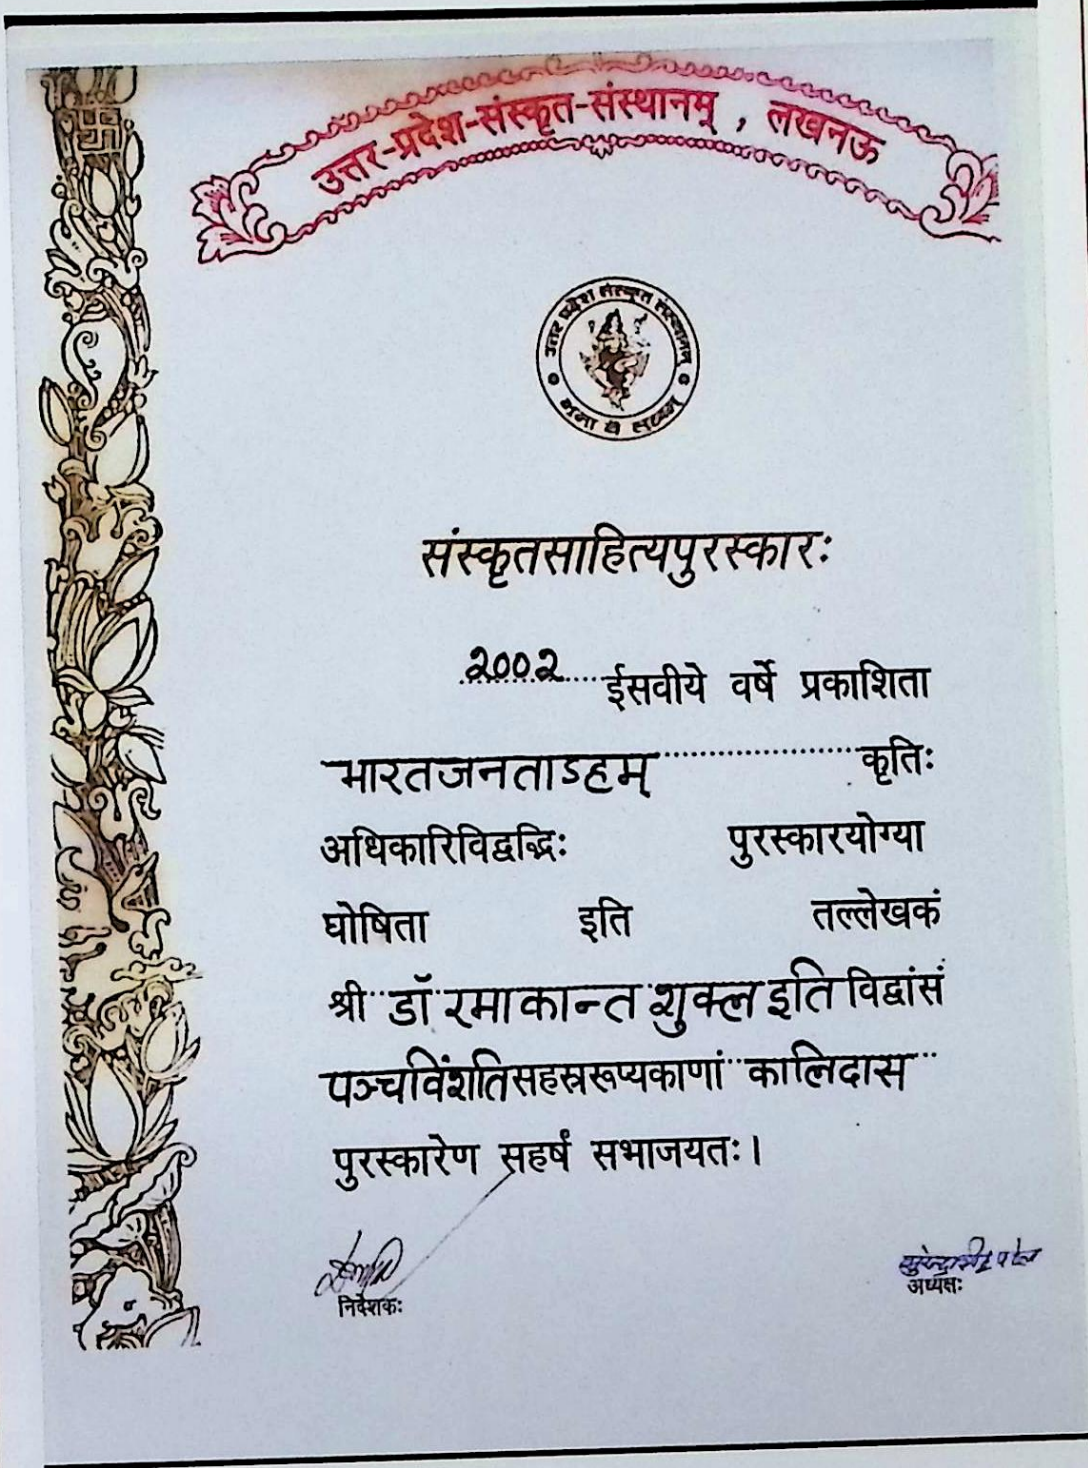 उत्तर-प्रदेश-संस्कृत-संस्थानम् , लखनऊ
उत्तर प्रदेश संस्कृत संस्थानम्
संस्कृतसाहित्यपुरस्कारः
२००२ ईसवीये वर्षे प्रकाशिता
भारतजनताऽहम् कृतिः
अधिकारिविद्वद्भिः पुरस्कारयोग्या
घोषिता इति तल्लेखकं
श्री डॉ रमाकान्त शुक्ल इति विद्वांसं
पञ्चविंशतिसहस्ररूप्यकाणां कालिदास
पुरस्कारेण सहर्षं सभाजयतः।
निदेशकः
अध्यक्षः